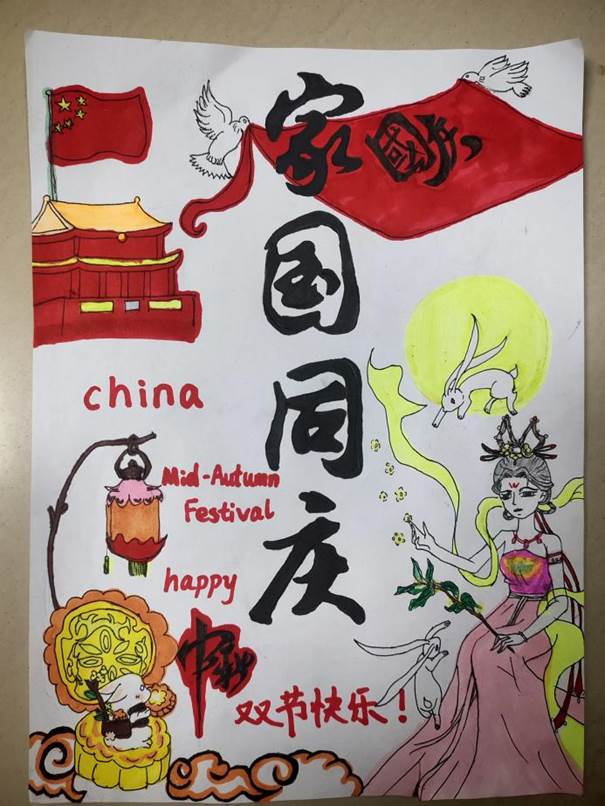 家国同庆
国庆
china
Mid-Autumn
Festival
happy
中秋
双节快乐!